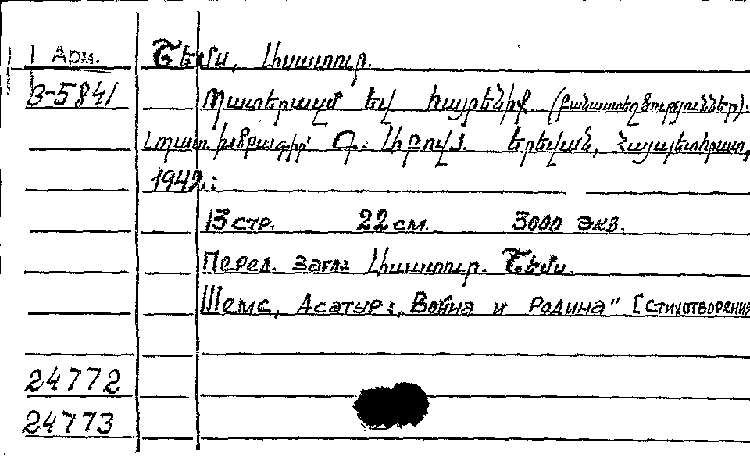 1 Арм. Շեմս, Ասատուր.
З-5841 Պատերազմ եվ հայրենիք (բանաստեղծություններ).
Պատ. խմբագիր Երեվան, Հայպետհրատ,
1942.:
13 стр. 22 см. 3000 экз.
Перед загл: Ասատուր. Շեմս.
Шемс, Асатур: „Война и Родина" [стихотворения
24772
24773